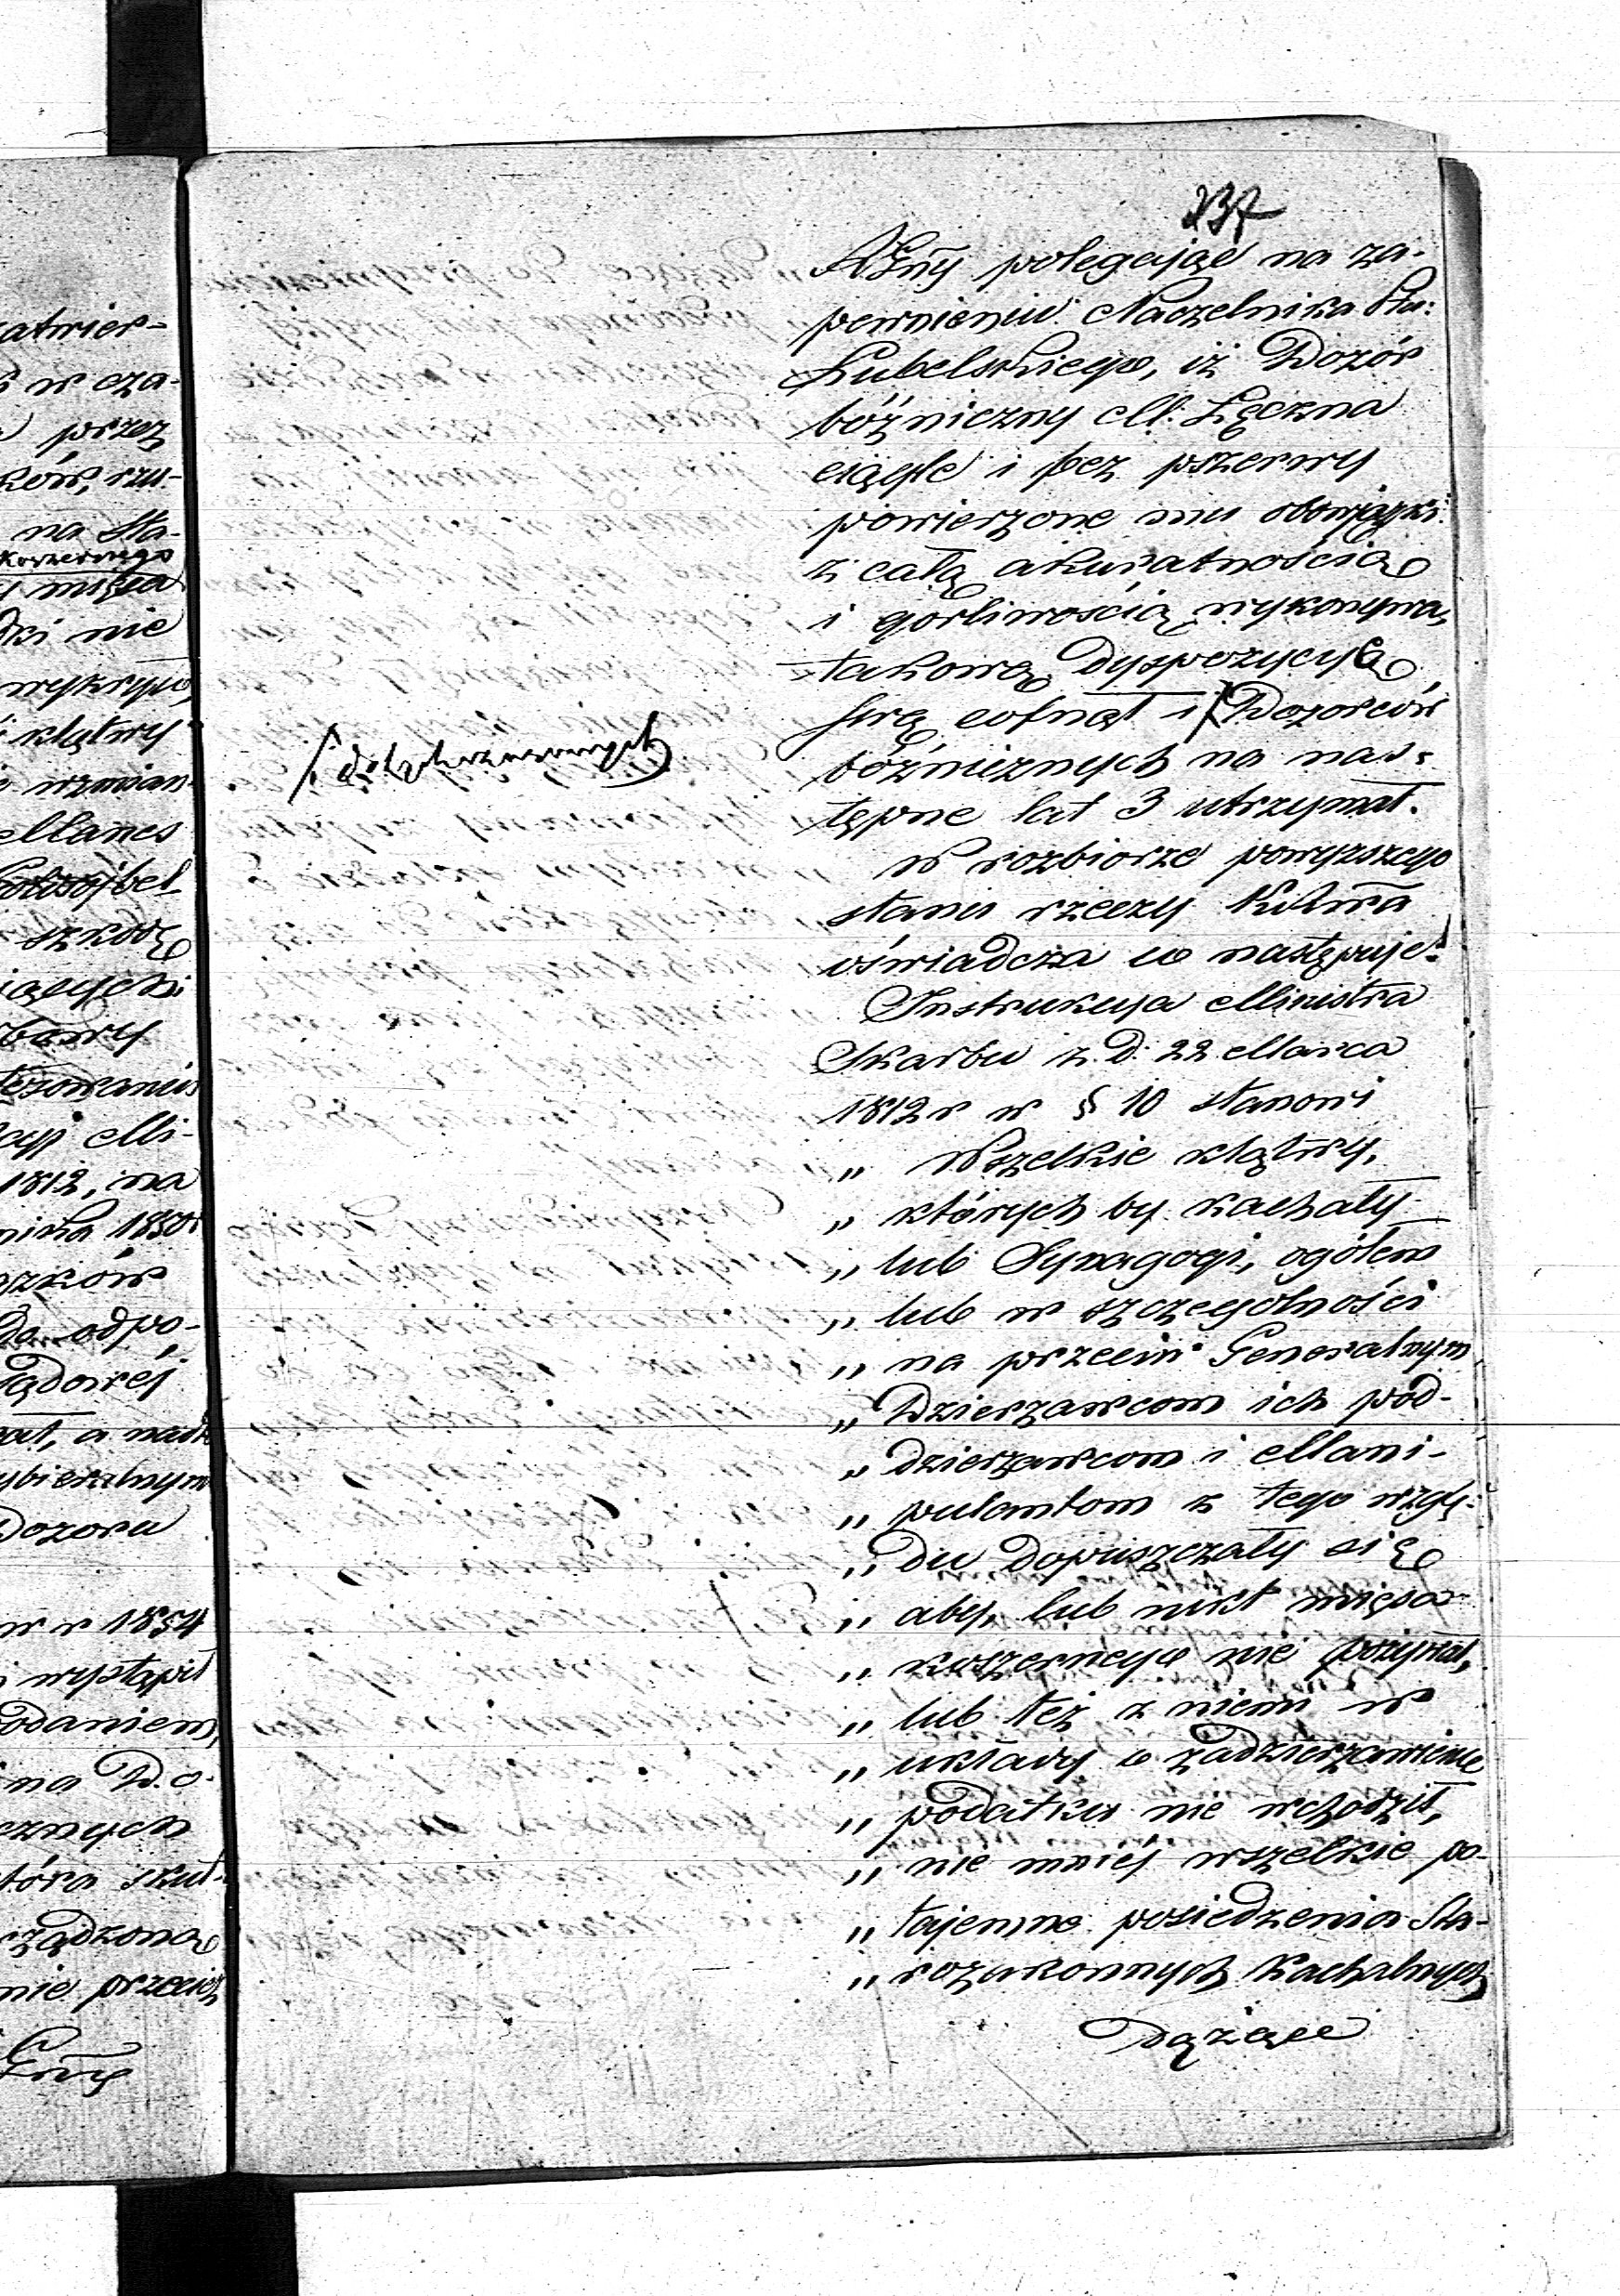 237
RGlny polegając na za-
pewnieniu Naczelnika Ptu:
Lubelskiego, iż Dozór
bóżniczny M: Łęczna
ciągle i bez pszerwy
powierzone mu obowiązki
z całą akuratnością
i gorliwością wykonywa,
takową dyspozycyą
swą cofnął i / Dozorców
bóżnicznych na nas-
tępne lat 3 utrzymał.
W rozbiorze powyższego
stanu rzeczy
oświadcza co następuje:
Instrukcya Ministra
Skarbu z d: 22 Marca
1812 r w § 10 stanowi
„ Wszelkie klątwy,
„ których by kachały
„ lub Synagogi, ogółem
„ lub w szczególności
„ na przeciw Generalnym
„ Dzierżawcom ich pod-
„ dzierżawcom i Mani-
„ pulantom z tego wzglę-
„ du dopuszczały się
„ aby, lub nikt mięsa
„ koszernego nie pożywał,
„ lub też z niemi w
„ układy o zadzierżawienie
„ podatku nie wchodził,
„ nie mniéj wszelkie po-
„ tajemne posiedzenia Sta-
„ rozakonnych Kachalnych
dążące
atwier-
w cza-
przez
ków, rzu-
na Sta-
Koszernego
mięsa
ki nie
wykryw,
klątwy
wzmian-
szkodę
1812, na
nika 1850r
do odpo-
Dozoru
w r 1854
wystąpił
odaniem,
na Do-
cznych
tóra skut-
rządzona
nie przecież